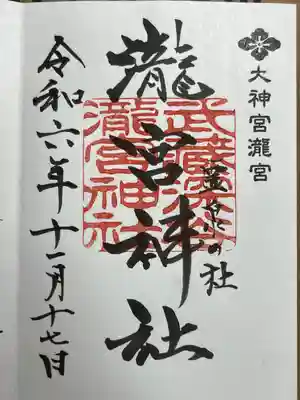 大神宮瀧宮
瀧宮神社
の社
武蔵深谷
瀧宮神社
令和六年十一月十七日